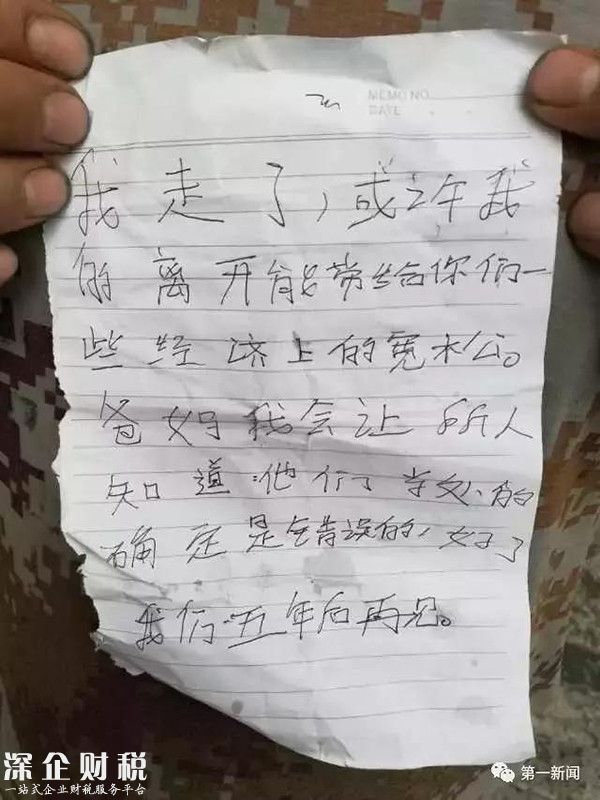 MEMO NO.
DATE
我走了，或许我
的离开能带给你们一
些经济上的宽松。
爸妈我会让所人
知道他们学校的
确定是错误的，好了
我们五年后再见。
深企财税
一站式企业财税服务平台
第一新闻